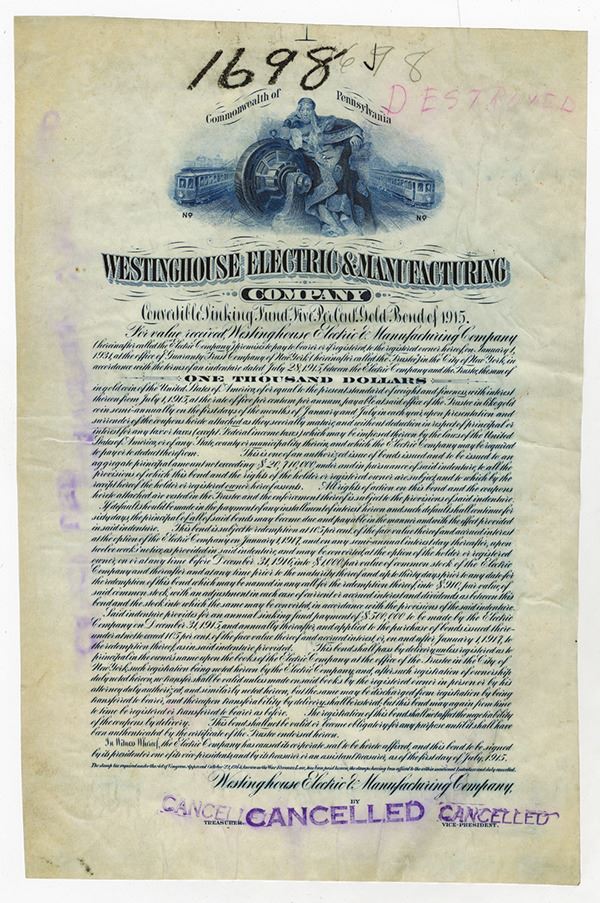 1698 8
Commonwealth of Pennsylvania
DESTROYED
No No
WESTINGHOUSE ELECTRIC & MANUFACTURING
COMPANY
Convertible Sinking Fund Five Per Cent. Gold Bond of 1915.
For value received Westinghouse Electric & Manufacturing Company
(hereinafter called the Electric Company) promises to pay to bearer, or if registered to the registered owner hereof, on January 1,
1931, at the office of Guaranty Trust Company of New York (hereinafter called the Trustee) in the City of New York, in
accordance with the terms of an indenture dated July 28, 1915, between the Electric Company and the Trustee, the sum of
ONE THOUSAND DOLLARS
in gold coin of the United States of America, of or equal to the present standard of weight and fineness, with interest
thereon from July 1, 1915, at the rate of five per centum per annum, payable at said office of the Trustee in like gold
coin semi-annually on the first days of the months of January and July in each year, upon presentation and
surrender of the coupons hereto attached as they severally mature, and without deduction in respect of principal or
interest for any tax or taxes (except Federal income taxes) which may be imposed thereon by the laws of the United
States of America, or of any State, county or municipality therein, and which the Electric Company may be required
to pay or to deduct therefrom. This is one of an authorized issue of bonds issued and to be issued to an
aggregate principal amount not exceeding $20,710,000 under and in pursuance of said indenture, to all the
provisions of which this bond and the rights of the holder or registered owner are subject, and to which by the
receipt hereof the holder or registered owner hereof assents. All rights of action on this bond and the coupons
hereto attached are vested in the Trustee and the enforcement thereof is subject to the provisions of said indenture.
If default should be made in the payment of any installment of interest hereon, and such default shall continue for
sixty days, the principal of all of said bonds may become due and payable in the manner and with the effect provided
in said indenture. This bond is subject to redemption at 105 per cent. of the face value thereof and accrued interest
at the option of the Electric Company on January 1, 1917, and on any semi-annual interest day thereafter, upon
twelve weeks notice, as provided in said indenture, and may be converted at the option of the holder or registered
owner, on or at any time before December 31, 1916, into $1,000 par value of common stock of the Electric
Company and thereafter and at any time prior to the maturity hereof and up to thirty days prior to any date for
the redemption of this bond which may be named in any call for the redemption thereof, into $910 par value of
said common stock, with an adjustment in each case of current or accrued interest and dividends as between this
bond and the stock into which the same may be converted, in accordance with the provisions of the said indenture.
Said indenture provides for an annual sinking fund payment of $500,000 to be made by the Electric
Company on December 31, 1917, and annually thereafter, and applied to the purchase of bonds issued there-
under at not to exceed 105 per cent. of the face value thereof and accrued interest or, on and after January 1, 1917, to
the redemption thereof as in said indenture provided. This bond shall pass by delivery unless registered as to
principal in the owner's name upon the books of the Electric Company at the office of the Trustee in the City of
New York, such registration being noted hereon by the Electric Company and, after such registration of ownership
duly noted hereon, no transfer shall be valid unless made on said books by the registered owner in person or by his
attorney duly authorized, and similarly noted hereon, but the same may be discharged from registration by being
transferred to bearer, and thereupon transferability by delivery shall be restored, but this bond may again from time
to time be registered or transferred to bearer as before. The registration of this bond shall not affect the negotiability
of the coupons by delivery. This bond shall not be valid or become obligatory for any purpose until it shall have
been authenticated by the certificate of the Trustee endorsed hereon.
In Witness Whereof, the Electric Company has caused its corporate seal to be hereto affixed, and this bond to be signed
by its president or one of its vice-presidents, and by its treasurer or an assistant treasurer, as of the first day of July, 1915.
Westinghouse Electric & Manufacturing Company,
BY
CANCELL CANCELLED CANCELLED
TREASURER. VICE-PRESIDENT.